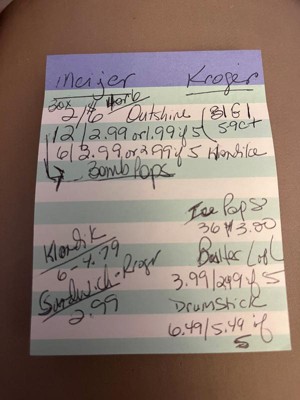 meijer Kroger
2/6 Outshine B1G1
12/2.99 or 1.99 if 5 59ct
6/3.99 or 2.99 if 5 Klondike
BombPops
Ice Pops
36 3.00
Klondik
6 - 4.79
3.99/2.99 if 5
Sandwich - Kroger
2.99
Drumstick
6.49/5.49 if
5